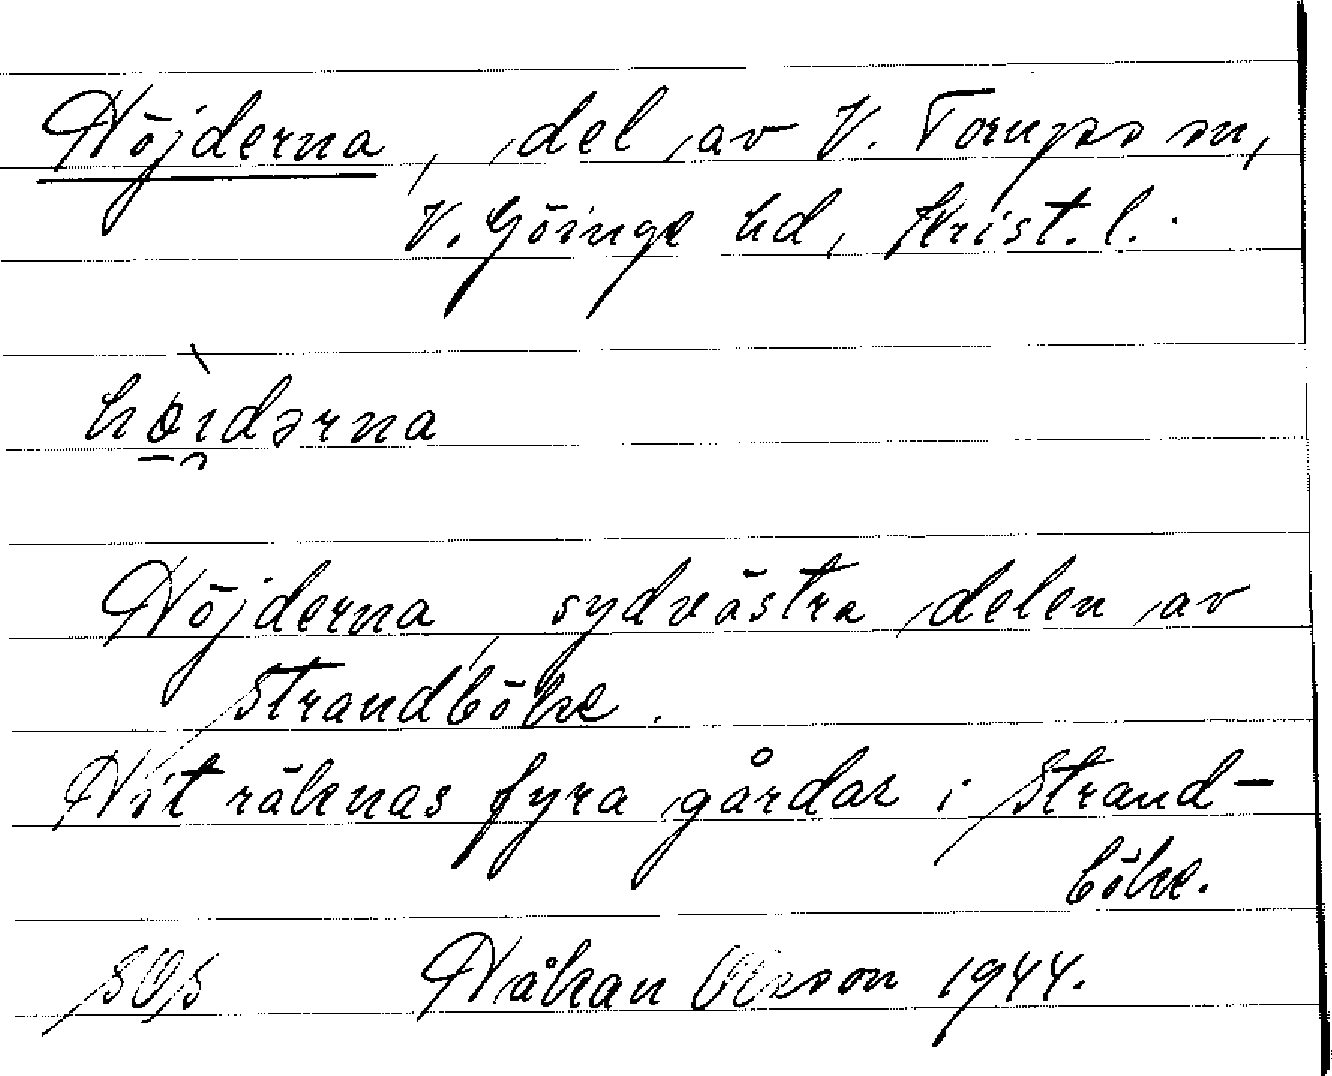 Höjderna, del av V. Torups sn,
V. Göinge hd, Krist. l.
höidərna
Höjderna, sydvästra delen av
Strandböke.
Hit räknas fyra gårdar i Strand-
böke.
SOS Håkan Olsson 1944.